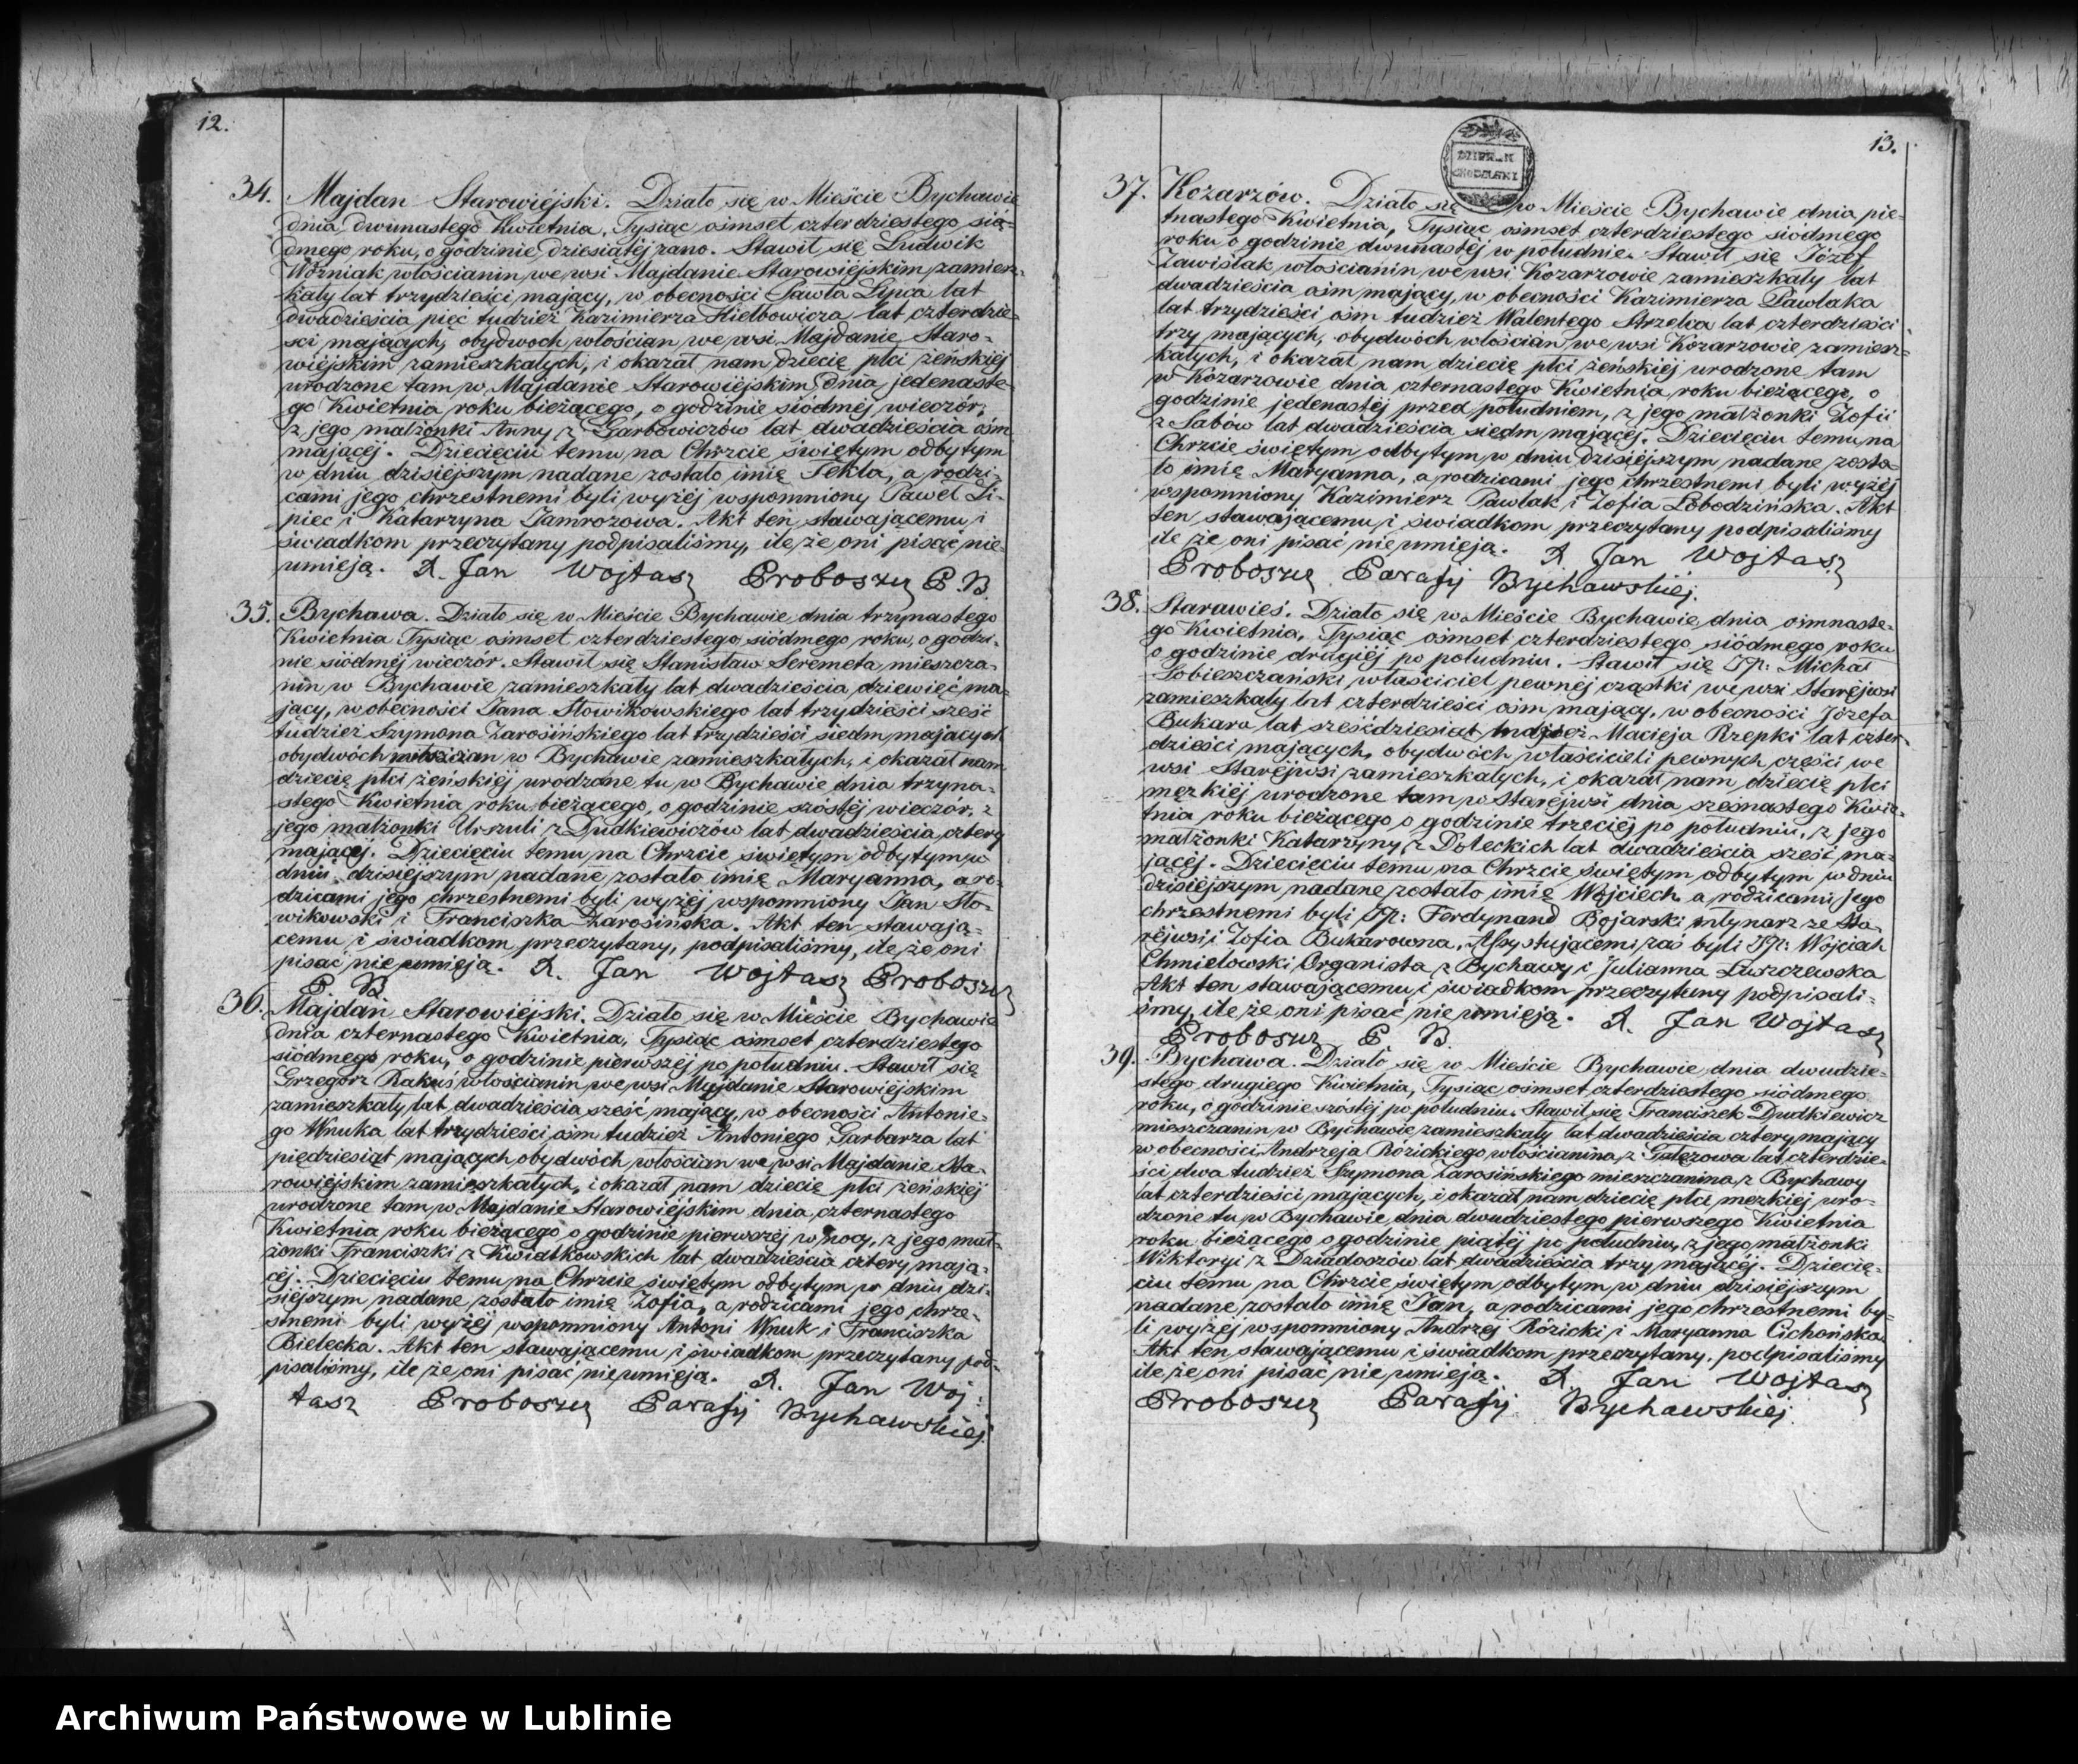 12.
34. Majdan Starowiéjski. Działo się w Mieście Bychawie
dnia dwunastego Kwietnia, Tysiąc ośmset czterdziestego sió-
dmego roku, o godzinie dziesiątéj rano. Stawił się Ludwik
Woźniak włościanin we wsi Majdanie Starowiéjskim zamiesz-
kały lat trzydzieści mający, w obecności Pawła Lipca lat
dwadzieścia pięć tudzież Kazimierza Kiełbowicza lat czterdzie-
ści mających, obydwóch włościan we wsi Majdanie Staro-
wiéjskim zamieszkałych, i okazał nam dziecię płci żeńskiéj
urodzone tam w Majdanie Starowiéjskim dnia jedenaste-
go Kwietnia roku bieżącego, o godzinie siódméj wieczór,
z jego małżonki Anny z Garbowiczów lat dwadzieścia ośm
mającéj. Dziecięciu temu na Chrzcie świętym odbytym
w dniu dzisiéjszym nadane zostało imię Tekla, a rodzi-
cami jego chrzestnemi byli wyżéj wspomniony Paweł Li-
piec i Katarzyna Jamrozowa. Akt ten stawającemu i
świadkom przeczytany podpisaliśmy, ile że oni pisać nie
umieją. X. Jan Wojtasz Proboszcz P. B.
35. Bychawa. Działo się w Mieście Bychawie dnia trzynastego
Kwietnia Tysiąc ośmset czterdziestego siódmego roku, o godzi-
nie siódméj wieczór. Stawił się Stanisław Seremeta mieszcza-
nin w Bychawie zamieszkały lat dwadzieścia dziewięć ma-
jący, w obecności Jana Słowikowskiego lat trzydzieści sześć
tudzież Szymona Zarosińskiego lat trzydzieści siedm mających
obydwóch mieszczan w Bychawie zamieszkałych, i okazał nam
dziecię płci żeńskiéj urodzone tu w Bychawie dnia trzyna-
stego Kwietnia roku bieżącego, o godzinie szóstéj wieczór, z
jego małżonki Urszuli z Dudkiewiczów lat dwadzieścia cztery
mającéj. Dziecięciu temu na Chrzcie świętym odbytym w
dniu dzisiéjszym nadane zostało imię Maryanna, a ro-
dzicami jego chrzestnemi byli wyżéj wspomniony Jan Sło-
wikowski i Franciszka Zarosińska. Akt ten stawają-
cemu i świadkom przeczytany, podpisaliśmy, ile że oni
pisać nie umieją. X. Jan Wojtasz Proboszcz
P. B.
36. Majdan Starowiéjski. Działo się w Mieście Bychawie
dnia czternastego Kwietnia, Tysiąc ośmset czterdziestego
siódmego roku, o godzinie pierwszéj po południu. Stawił się
Grzegorz Rakuś włościanin we wsi Majdanie Starowiéjskim
zamieszkały lat dwadzieścia sześć mający, w obecności Antonie-
go Wnuka lat trzydzieści ośm tudzież Antoniego Garbarza lat
pięćdziesiąt mających obydwóch włościan we wsi Majdanie Sta-
rowiéjskim zamieszkałych, i okazał nam dziecię płci żeńskiéj
urodzone tam w Majdanie Starowiéjskim dnia czternastego
Kwietnia roku bieżącego o godzinie pierwszéj w nocy, z jego mał-
żonki Franciszki z Kwiatkowskich lat dwadzieścia cztery mają-
céj. Dziecięciu temu na Chrzcie świętym odbytym w dniu dzi-
siéjszym nadane zostało imię Zofia, a rodzicami jego chrze-
stnemi byli wyżéj wspomniony Antoni Wnuk i Franciszka
Bielecka. Akt ten stawającemu i świadkom przeczytany pod-
pisaliśmy, ile że oni pisać nie umieją. X. Jan Woj-
tasz Proboszcz Parafij Bychawskiéj.
13.
37. Kozarzów. Działo się w Mieście Bychawie dnia pię-
tnastego Kwietnia, Tysiąc ośmset czterdziestego siódmego
roku o godzinie dwunastéj w południe. Stawił się Józef
Zawiślak włościanin we wsi Kozarzowie zamieszkały lat
dwadzieścia ośm mający, w obecności Kazimierza Pawlaka
lat trzydzieści ośm tudzież Walentego Strzelca lat czterdzieści
trzy mających, obydwóch włościan we wsi Kozarzowie zamiesz-
kałych, i okazał nam dziecię płci żeńskiéj urodzone tam
w Kozarzowie dnia czternastego Kwietnia roku bieżącego, o
godzinie jedenastéj przed południem, z jego małżonki Zofii
z Sabów lat dwadzieścia siedm mającéj. Dziecięciu temu na
Chrzcie świętym odbytym w dniu dzisiéjszym nadane zosta-
ło imię Maryanna, a rodzicami jego chrzestnemi byli wyżéj
wspomniony Kazimierz Pawlak i Zofia Łobodzińska. Akt
ten stawającemu i świadkom przeczytany podpisaliśmy
ile że oni pisać nie umieją. X. Jan Wojtasz
Proboszcz Parafij Bychawskiéj.
38. Starawieś. Działo się w Mieście Bychawie dnia ośmnaste-
go Kwietnia, Tysiąc ośmset czterdziestego siódmego roku
o godzinie drugiéj po południu. Stawił się JP: Michał
Sobieszczański właściciel pewnéj cząstki we wsi Staréjwsi
zamieszkały lat czterdzieści ośm mający, w obecności Józefa
Bukara lat sześćdziesiąt tudzież Macieja Rzepki lat czter-
dzieści mających, obydwóch właścicieli pewnych części we
wsi Staréjwsi zamieszkałych, i okazał nam dziecię płci
męzkiéj urodzone tam w Staréjwsi dnia szesnastego Kwie-
tnia roku bieżącego o godzinie trzeciéj po południu, z jego
małżonki Katarzyny z Doleckich lat dwadzieścia sześć ma-
jącéj. Dziecięciu temu na Chrzcie świętym odbytym w dniu
dzisiéjszym nadane zostało imię Wojciech a rodzicami jego
chrzestnemi byli JP: Ferdynand Bojarski młynarz ze Sta-
réjwsi i Zofia Bukarowna, Assystującemi zaś byli JP: Wojciech
Chmielowski Organista z Bychawy i Julianna Łuszczewska
Akt ten stawającemu i świadkom przeczytany podpisali-
śmy, ile że oni pisać nie umieją. X. Jan Wojtasz
Proboszcz P. B.
39. Bychawa. Działo się w Mieście Bychawie dnia dwudzie-
stego drugiego Kwietnia, Tysiąc ośmset czterdziestego siódmego
roku, o godzinie szóstéj po południu. Stawił się Franciszek Dudkiewicz
mieszczanin w Bychawie zamieszkały lat dwadzieścia cztery mający
w obecności Andrzeja Rózickiego włościanina z Gałęzowa lat czterdzie-
ści dwa tudzież Szymona Zarosińskiego mieszczanina z Bychawy
lat czterdzieści mających, i okazał nam dziecię płci męzkiéj uro-
dzone tu w Bychawie dnia dwudziestego pierwszego Kwietnia
roku bieżącego o godzinie piątéj po południu, z jego małżonki
Wiktoryi z Dziadoszów lat dwadzieścia trzy mającéj. Dziecię-
ciu temu na Chrzcie świętym odbytym w dniu dzisiéjszym
nadane zostało imię Jan, a rodzicami jego chrzestnemi by-
li wyżéj wspomniony Andrzéj Rózicki i Maryanna Cichońska
Akt ten stawającemu i świadkom przeczytany, podpisaliśmy
ile że oni pisać nie umieją. X. Jan Wojtasz
Proboszcz Parafij Bychawskiéj.
Archiwum Państwowe w Lublinie